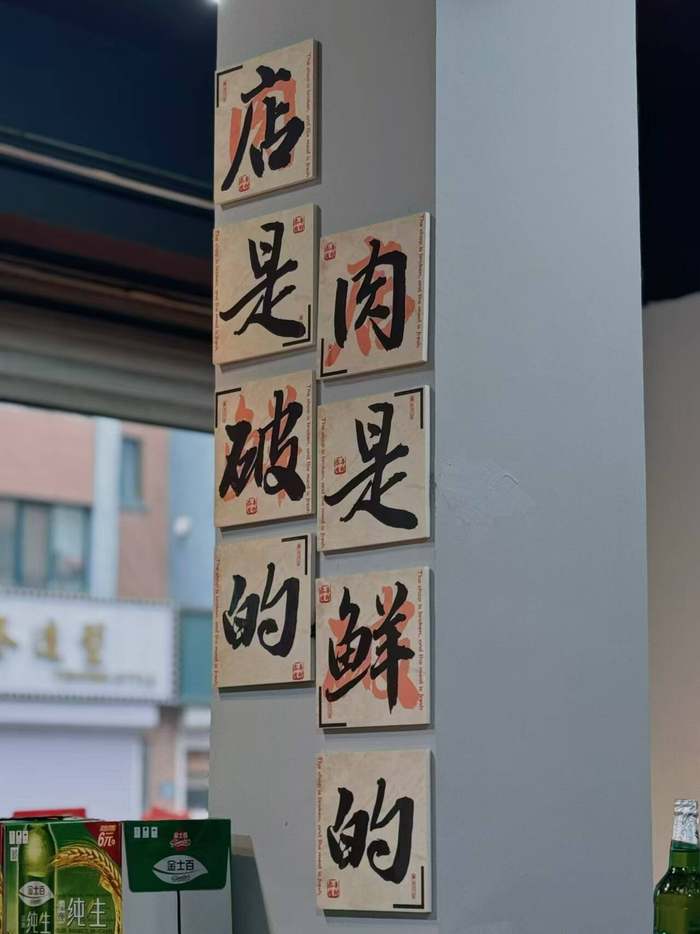 店是破的
肉是鲜的
The shop is broken, and the meat is fresh
造型
6元
金士百
纯生
金士百
纯生
金士百